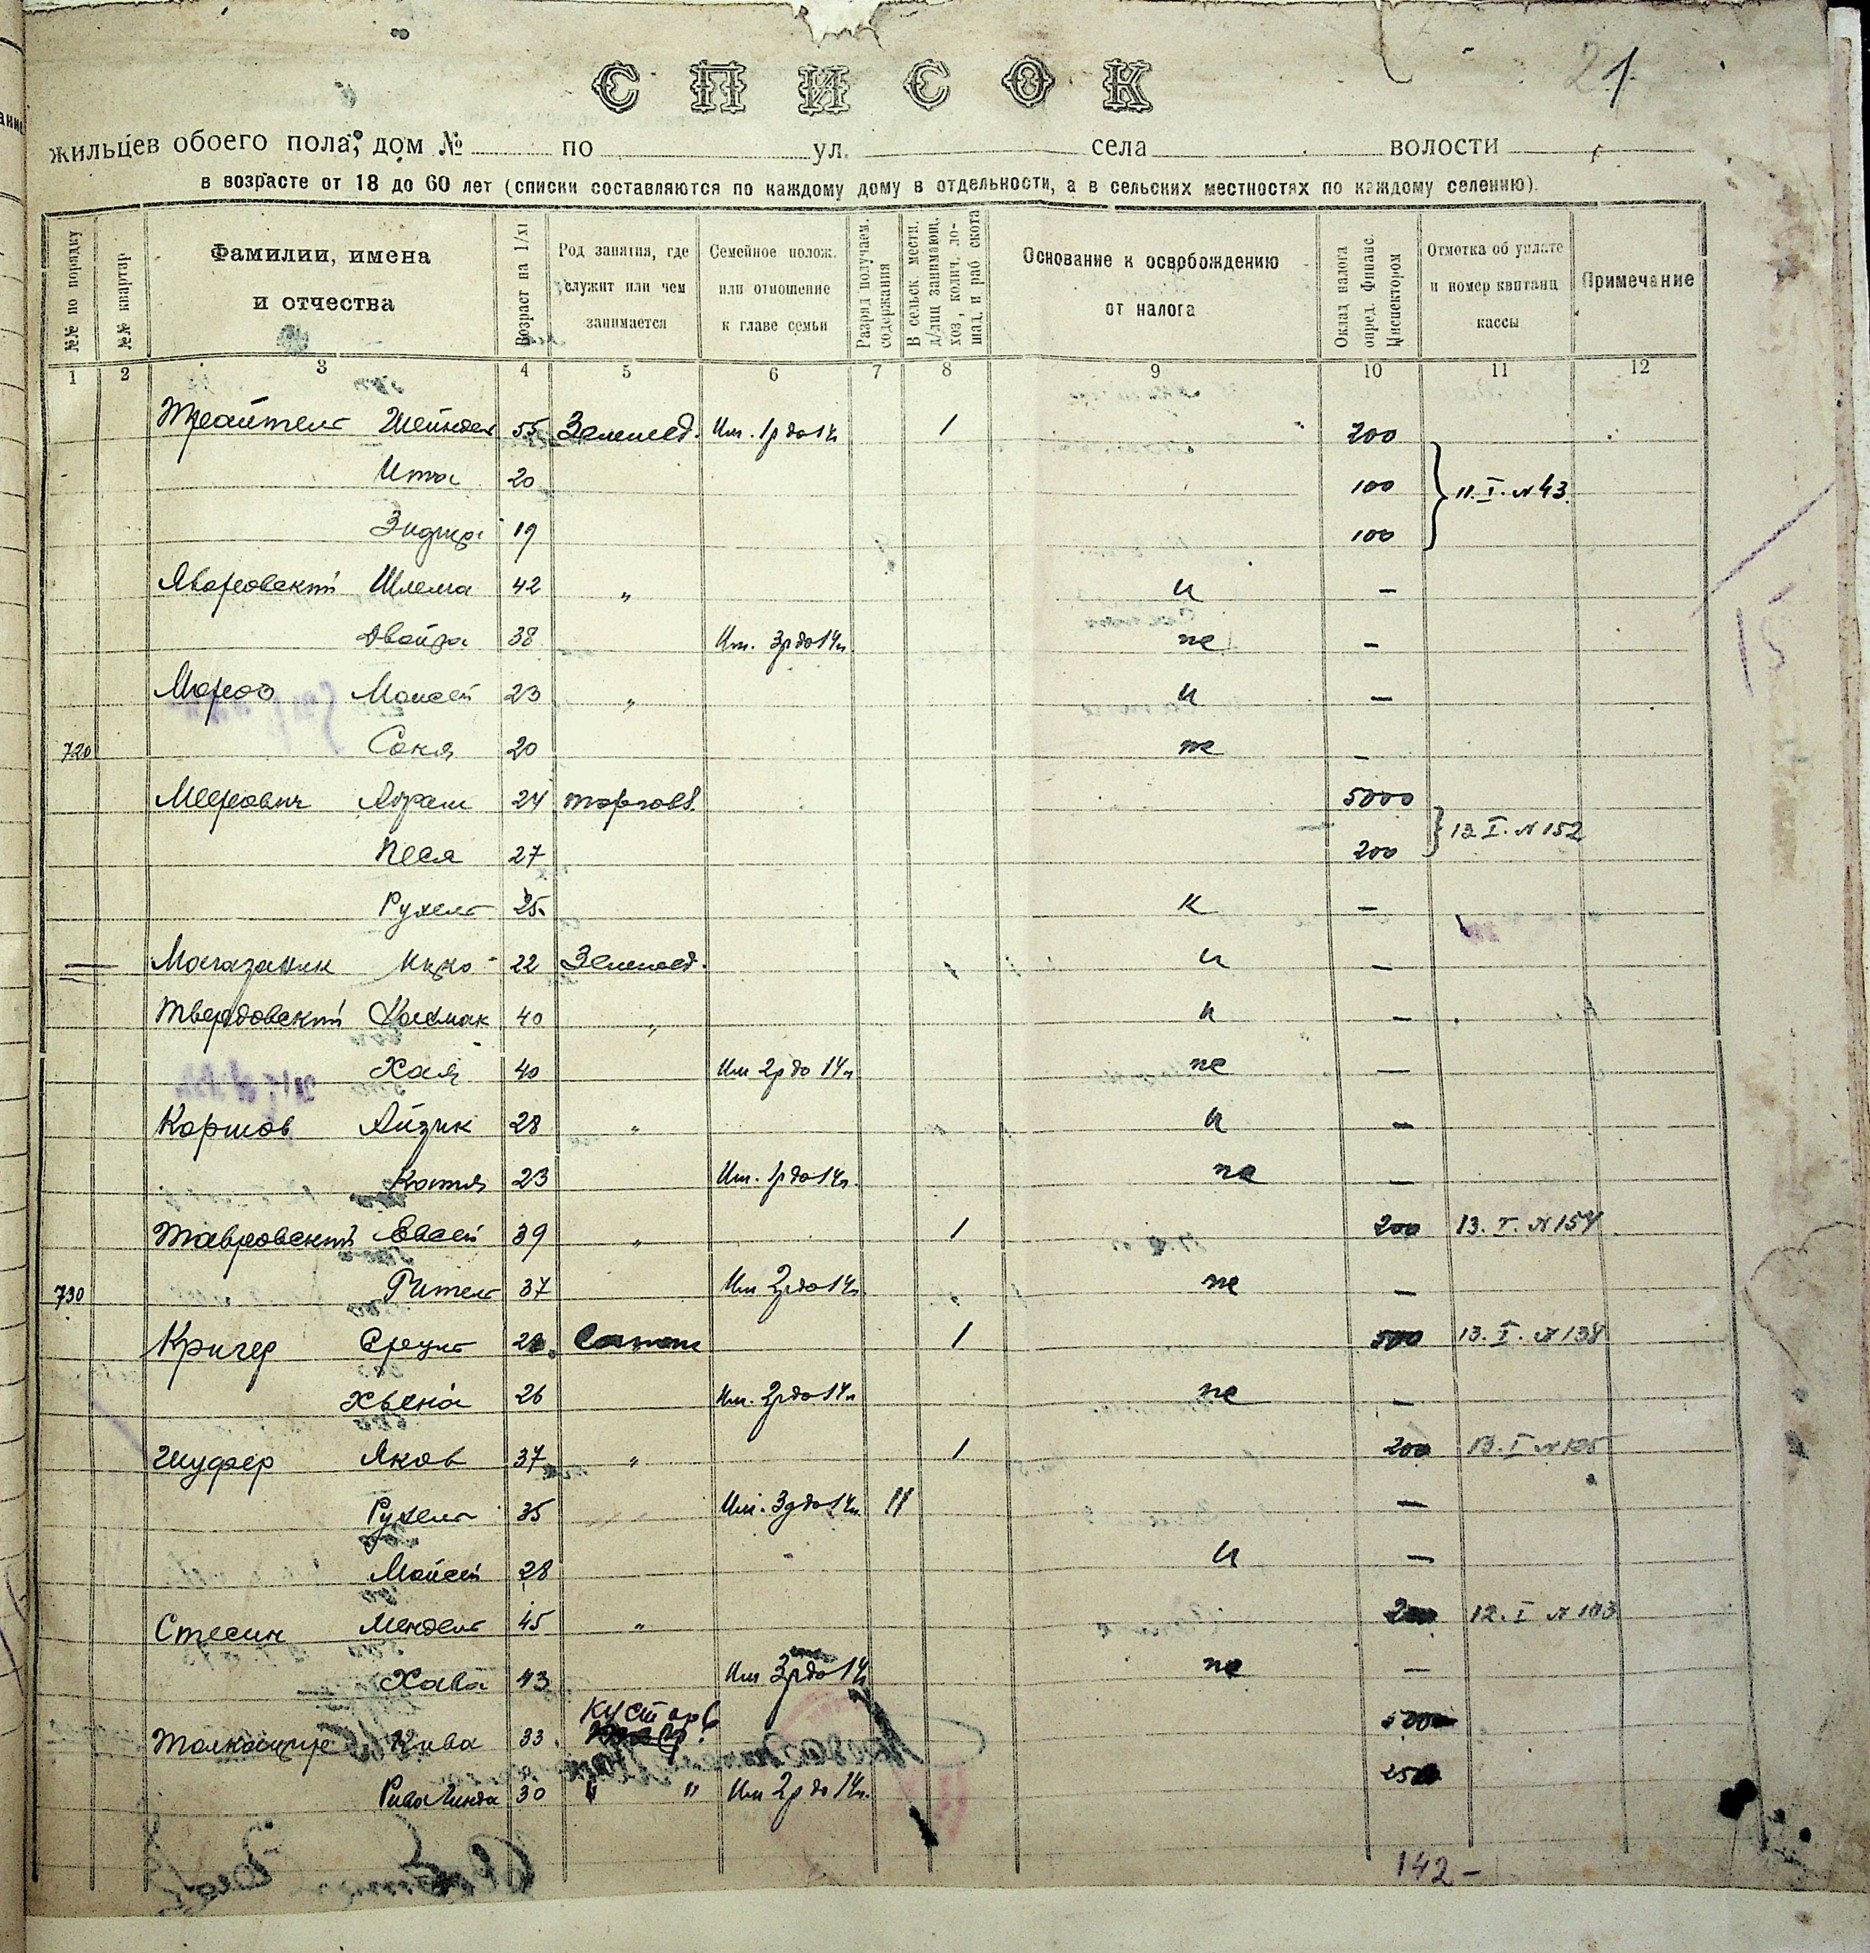 21
СПИСОК
жильцев обоего пола, дом № по ул. села волости
в возрасте от 18 до 60 лет (списки составляются по каждому дому в отдельности, а в сельских местностях по каждому селению).
№№ по порядку
№№ квартир
Фамилии, имена и отчества
Возраст на 1/XI
Род занятия, где служит или чем занимается
Семейное полож. или отношение к главе семьи
Разряд получаем. содержания
В сельск мести. д/лиц занимающ. хоз., колич. лошад. и раб скота
Основание к освобождению от налога
Оклад налога опред. финанс. Инспектором
Отмотка об уплате и номер квитанц кассы
Примечание
1 2 3 4 5 6 7 8 9 10 11 12
Трайтель Шейндель 55 Землед. Им. 1р до 14л 1 200
Ита 20 100 11.I.N43.
19 100
Яворовский Шлема 42 „ и —
Двойра 38 Им. 3р до 14л. не —
Мороз Моисей 23 „ и —
720 Соня 20 не —
Меерович Абрам 24 торговл. 5000
Песя 27 200 12 I. N152
Рухель 25. и —
Магазаник Ицко 22 Землед. и —
Твердовский 40 „ и —
Хая 40 Им 2р до 14л. не —
Коршов Айзик 28 „ и —
23 Им. 1р до 14л. не —
Тавровский Евсей 39 „ 1 200 13.I.N154
730 Гитель 37 Им 2р до 14л не —
Кригер Сапож 1 500 13.I.N138
26 Им. 2р до 14л не —
Шуфер Яков 37 „ 1 200 13.I N
Рухель 35 Им. 3р до 14л. —
Мойсей 28 и —
Стесин Мендель 45 „ 12.I N103
Хава 43 Им 3р до 14л не —
Кустарь
Кива 33 500
Рива Гинда 30 " " Им 2р до 14л. 250
142-